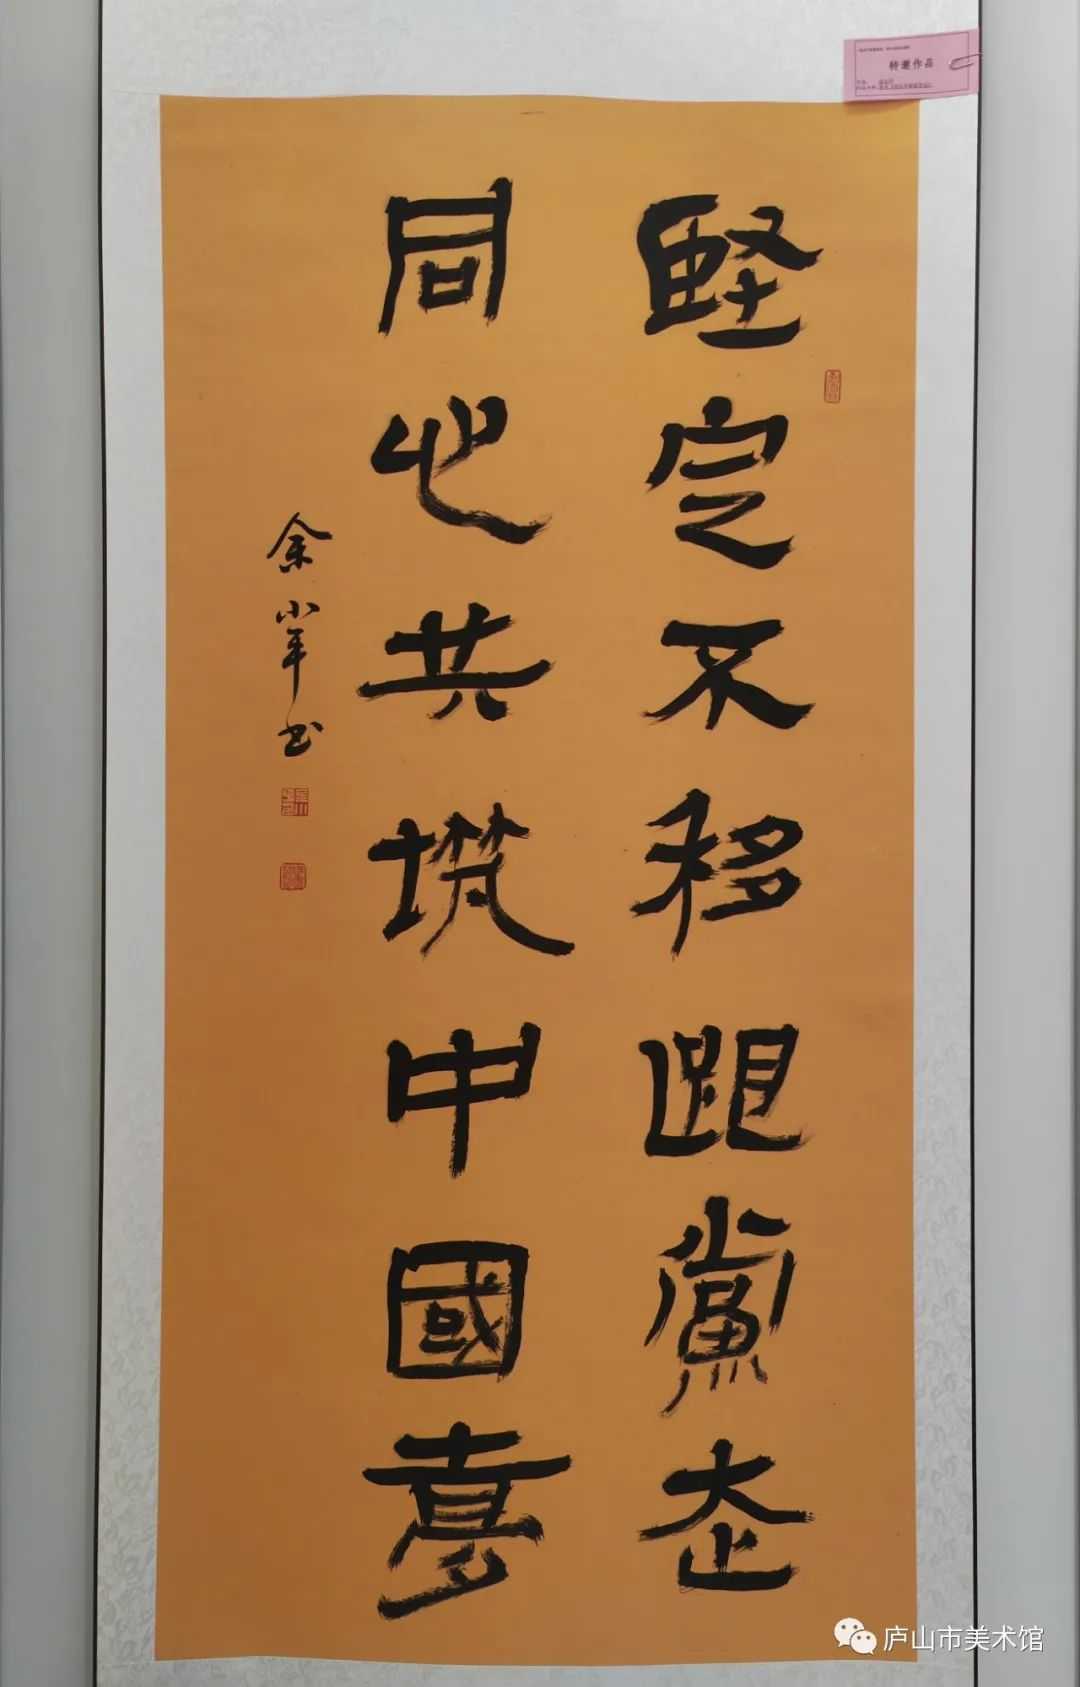 特邀作品
堅定不移跟黨走
同心共筑中國夢
余小平书
庐山市美术馆